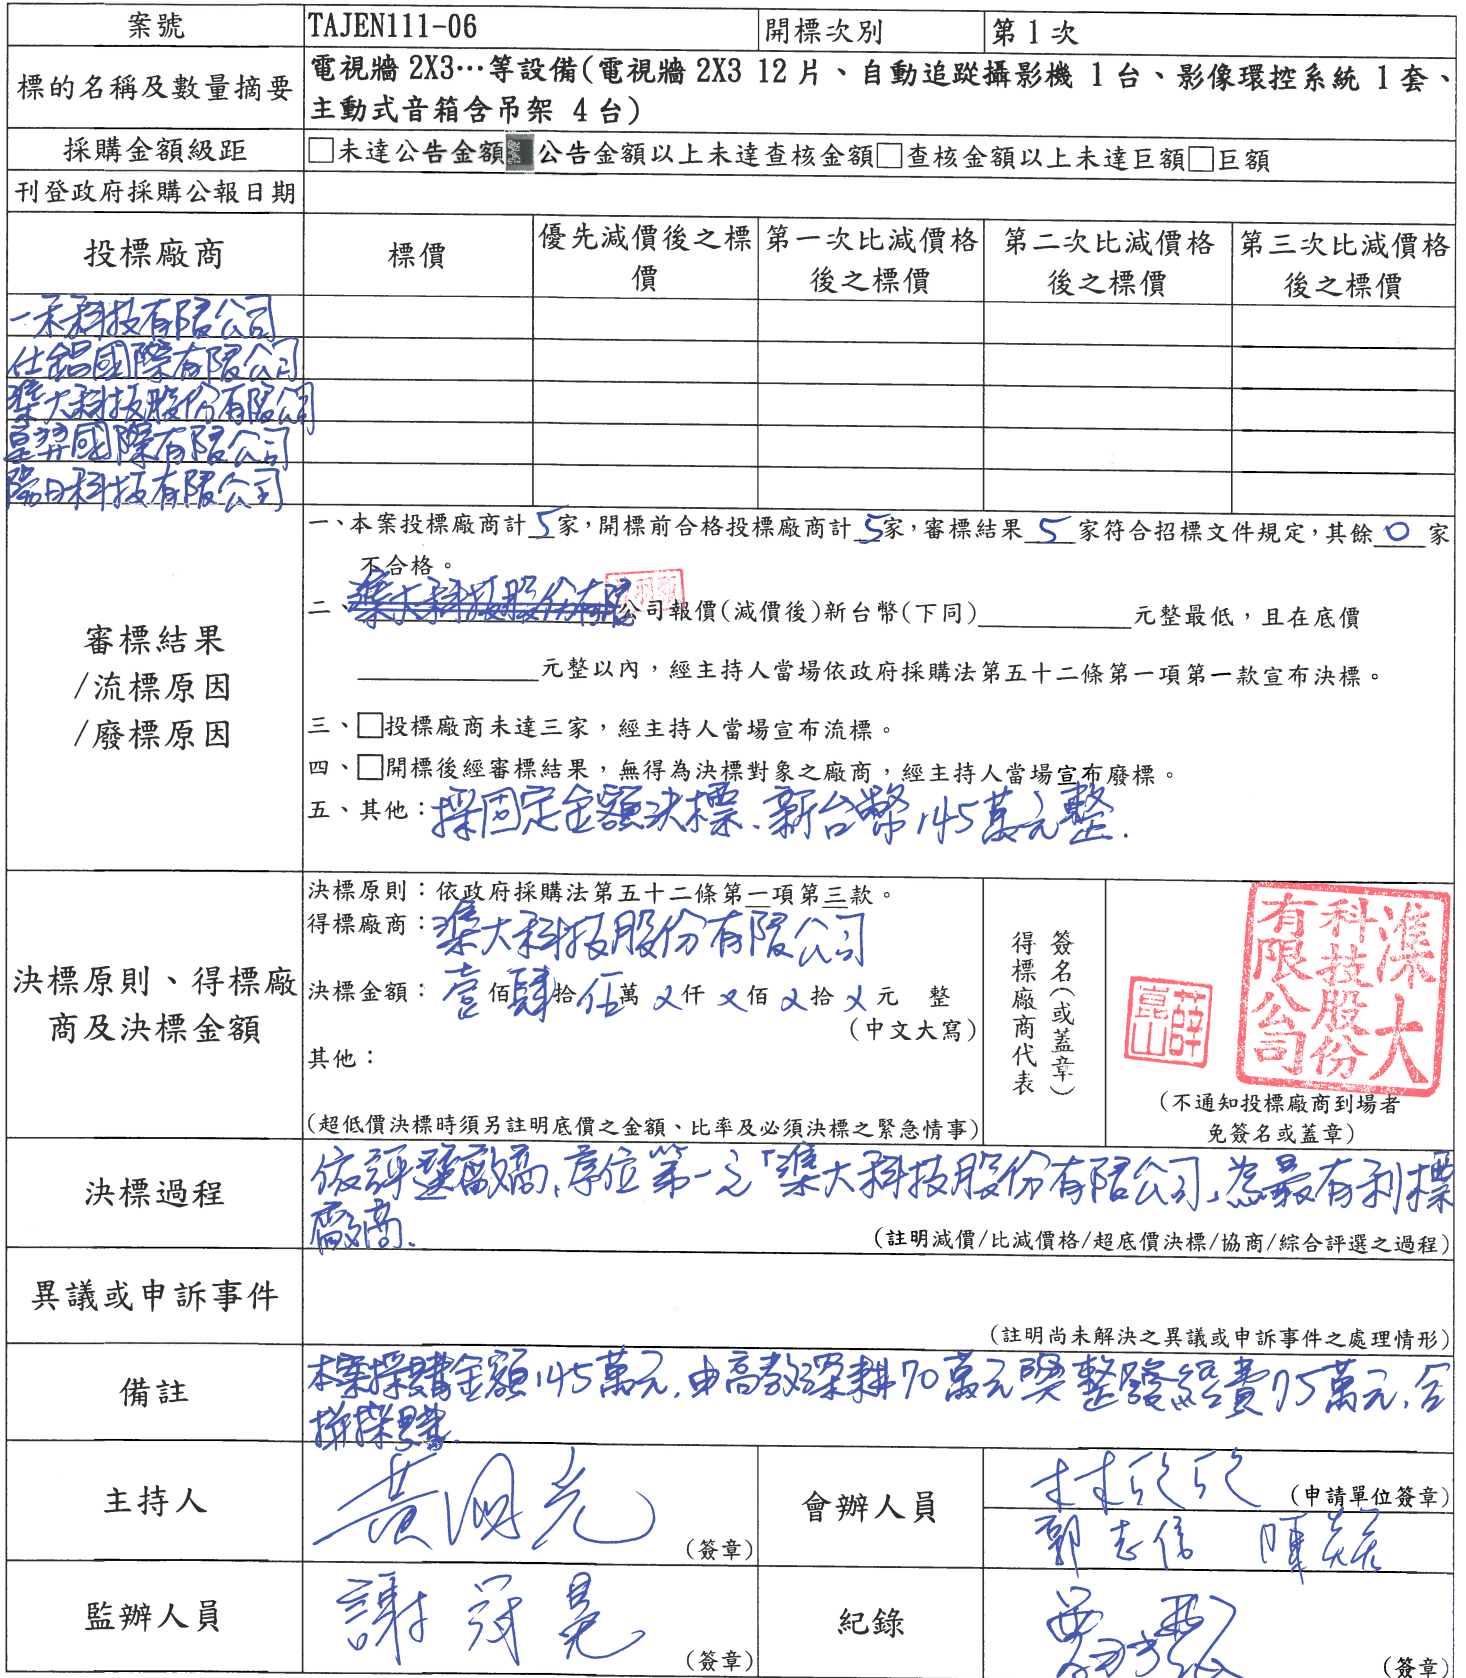 案號 TAJEN111-06 開標次別 第 1 次
標的名稱及數量摘要 電視牆 2X3⋯等設備(電視牆 2X3 12 片、自動追蹤攝影機 1 台、影像環控系統 1 套、
主動式音箱含吊架 4 台)
採購金額級距 □未達公告金額■公告金額以上未達查核金額□查核金額以上未達巨額□巨額
刊登政府採購公報日期
投標廠商 標價 優先減價後之標價 第一次比減價格後之標價 第二次比減價格後之標價 第三次比減價格後之標價
一禾科技有限公司
仕錩國際有限公司
準大科技股份有限公司
昱羿國際有限公司
陽日科技有限公司
審標結果
/流標原因
/廢標原因
一、本案投標廠商計 5 家,開標前合格投標廠商計 5 家,審標結果 5 家符合招標文件規定,其餘 0 家
不合格。
二、準大科技股份有限公司報價(減價後)新台幣(下同)________元整最低,且在底價
________元整以內,經主持人當場依政府採購法第五十二條第一項第一款宣布決標。
三、□投標廠商未達三家,經主持人當場宣布流標。
四、□開標後經審標結果,無得為決標對象之廠商,經主持人當場宣布廢標。
五、其他:採固定金額決標、新台幣145萬元整.
決標原則、得標廠商及決標金額
決標原則:依政府採購法第五十二條第一項第三款。
得標廠商:準大科技股份有限公司
決標金額: 壹佰肆拾伍萬 x 仟 x 佰 x 拾 x 元 整
(中文大寫)
其他:
(超低價決標時須另註明底價之金額、比率及必須決標之緊急情事)
得標廠商代表
簽名(或蓋章)
準大科技股份有限公司
薛崑山
(不通知投標廠商到場者
免簽名或蓋章)
決標過程 依評選廠商,序位第一之「準大科技股份有限公司」為最有利標
廠商.
(註明減價/比減價格/超底價決標/協商/綜合評選之過程)
異議或申訴事件
(註明尚未解決之異議或申訴事件之處理情形)
備註 本案採購金額145萬元,由高教深耕70萬元與整發經費75萬元,合
併採購.
主持人 黃國光 (簽章) 會辦人員 林欣欣 (申請單位簽章)
郭志信
監辦人員 謝 (簽章) 紀錄 (簽章)